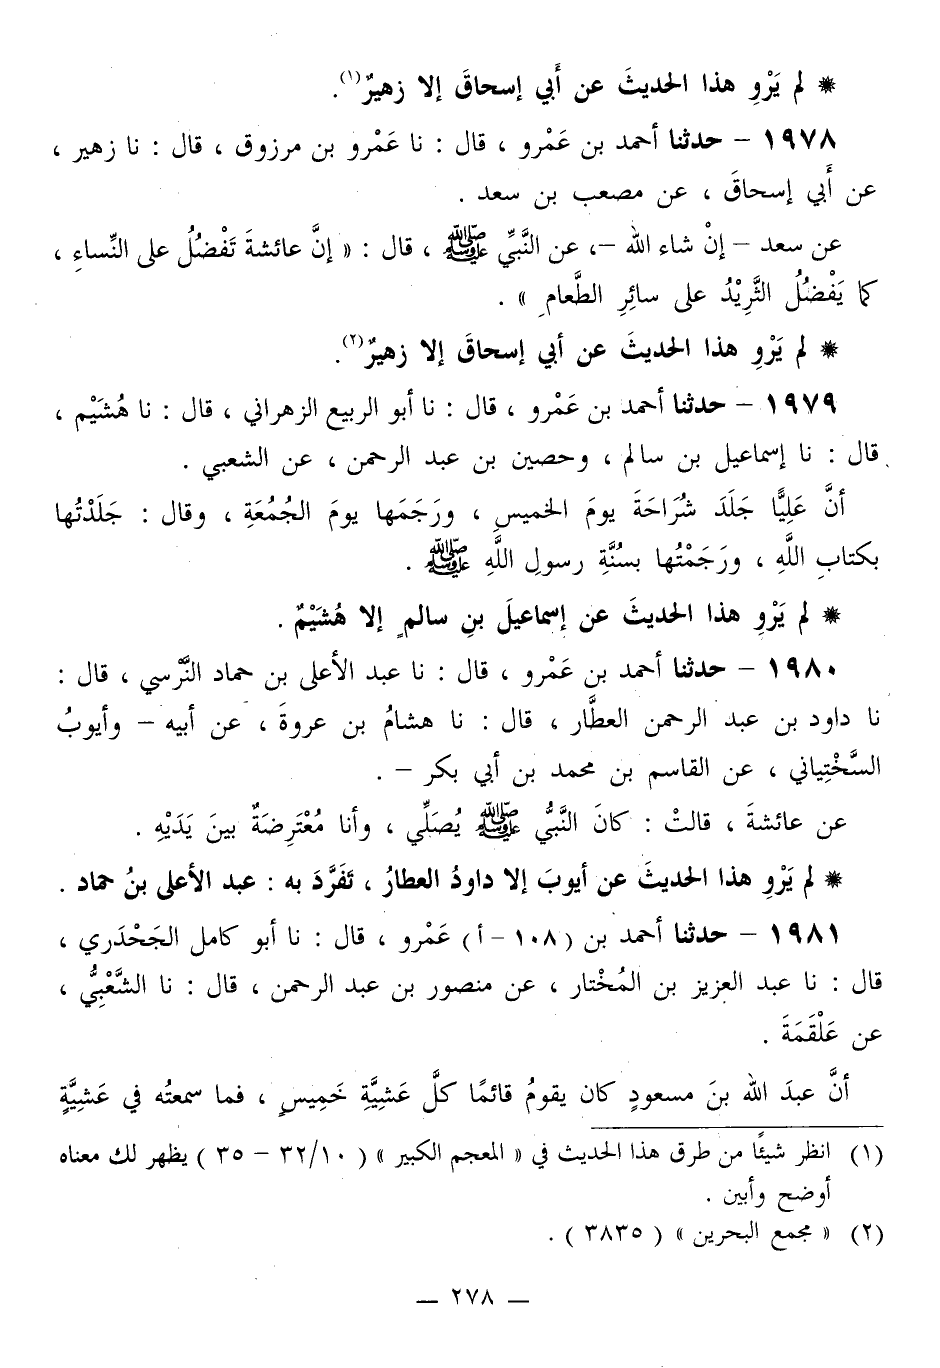 * لم يَرْوِ هذا الحديثَ عن أَبي إسحاقَ إلا زهيرٌ(١).
١٩٧٨ – حدثنا أحمد بن عَمْرو ، قال : نا عَمْرو بن مرزوق ، قال : نا زهير ،
عن أَبي إسحاقَ ، عن مصعب بن سعد .
عن سعد – إنْ شاء الله –، عن النَّبيِّ ﷺ ، قال : « إنَّ عائشةَ تَفْضُلُ على النِّساءِ ،
كما يَفْضُلُ الثَّرِيْدُ على سائِرِ الطَّعامِ » .
* لم يَرْوِ هذا الحديثَ عن أبي إسحاقَ إلا زهيرٌ(٢).
١٩٧٩ – حدثنا أحمد بن عَمْرو ، قال : نا أبو الربيع الزهراني ، قال : نا هُشَيْم ،
قال : نا إسماعيل بن سالم ، وحصين بن عبد الرحمن ، عن الشعبي .
أنَّ عَلِيًّا جَلَدَ شُرَاحَةَ يومَ الخميسِ ، ورَجَمَها يومَ الجُمُعَةِ ، وقال : جَلَدْتُها
بكتابِ اللَّهِ ، ورَجَمْتُها بسُنَّةِ رسولِ اللَّهِ ﷺ .
* لم يَرْوِ هذا الحديثَ عن إسماعيلَ بنِ سالمٍ إلا هُشَيْمٌ .
١٩٨٠ – حدثنا أحمد بن عَمْرو ، قال : نا عبد الأعلى بن حماد النَّرْسي ، قال :
نا داود بن عبد الرحمن العطَّار ، قال : نا هشامُ بن عروةَ ، عن أبيه – وأيوبُ
السَّخْتِياني ، عن القاسم بن محمد بن أبي بكر – .
عن عائشةَ ، قالتْ : كانَ النَّبيُّ ﷺ يُصَلِّي ، وأنا مُعْتَرِضَةٌ بينَ يَدَيْهِ .
* لم يَرْوِ هذا الحديثَ عن أيوبَ إلا داودُ العطارُ ، تَفَرَّدَ به : عبد الأعلى بنُ حماد .
١٩٨١ – حدثنا أحمد بن (١٠٨ - أ) عَمْرو ، قال : نا أبو كامل الجَحْدَري ،
قال : نا عبد العزيز بن المُخْتار ، عن منصور بن عبد الرحمن ، قال : نا الشَّعْبِيُّ ،
عن عَلْقَمَةَ .
أنَّ عبدَ الله بنَ مسعودٍ كان يقومُ قائمًا كلَّ عَشِيَّةِ خَمِيسٍ ، فما سمعتُه في عَشِيَّةٍ
(١) انظر شيئًا من طرق هذا الحديث في « المعجم الكبير » ( ٣٢/١٠ – ٣٥ ) يظهر لك معناه
أوضح وأبين .
(٢) « مجمع البحرين » ( ٣٨٣٥ ) .
— ٢٧٨ —